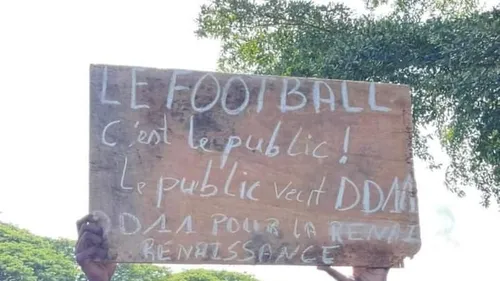 LE FOOTBALL
C'est le public!
Le public veut DD11
DD11 POUR LA RENAI
RENAISSANCE